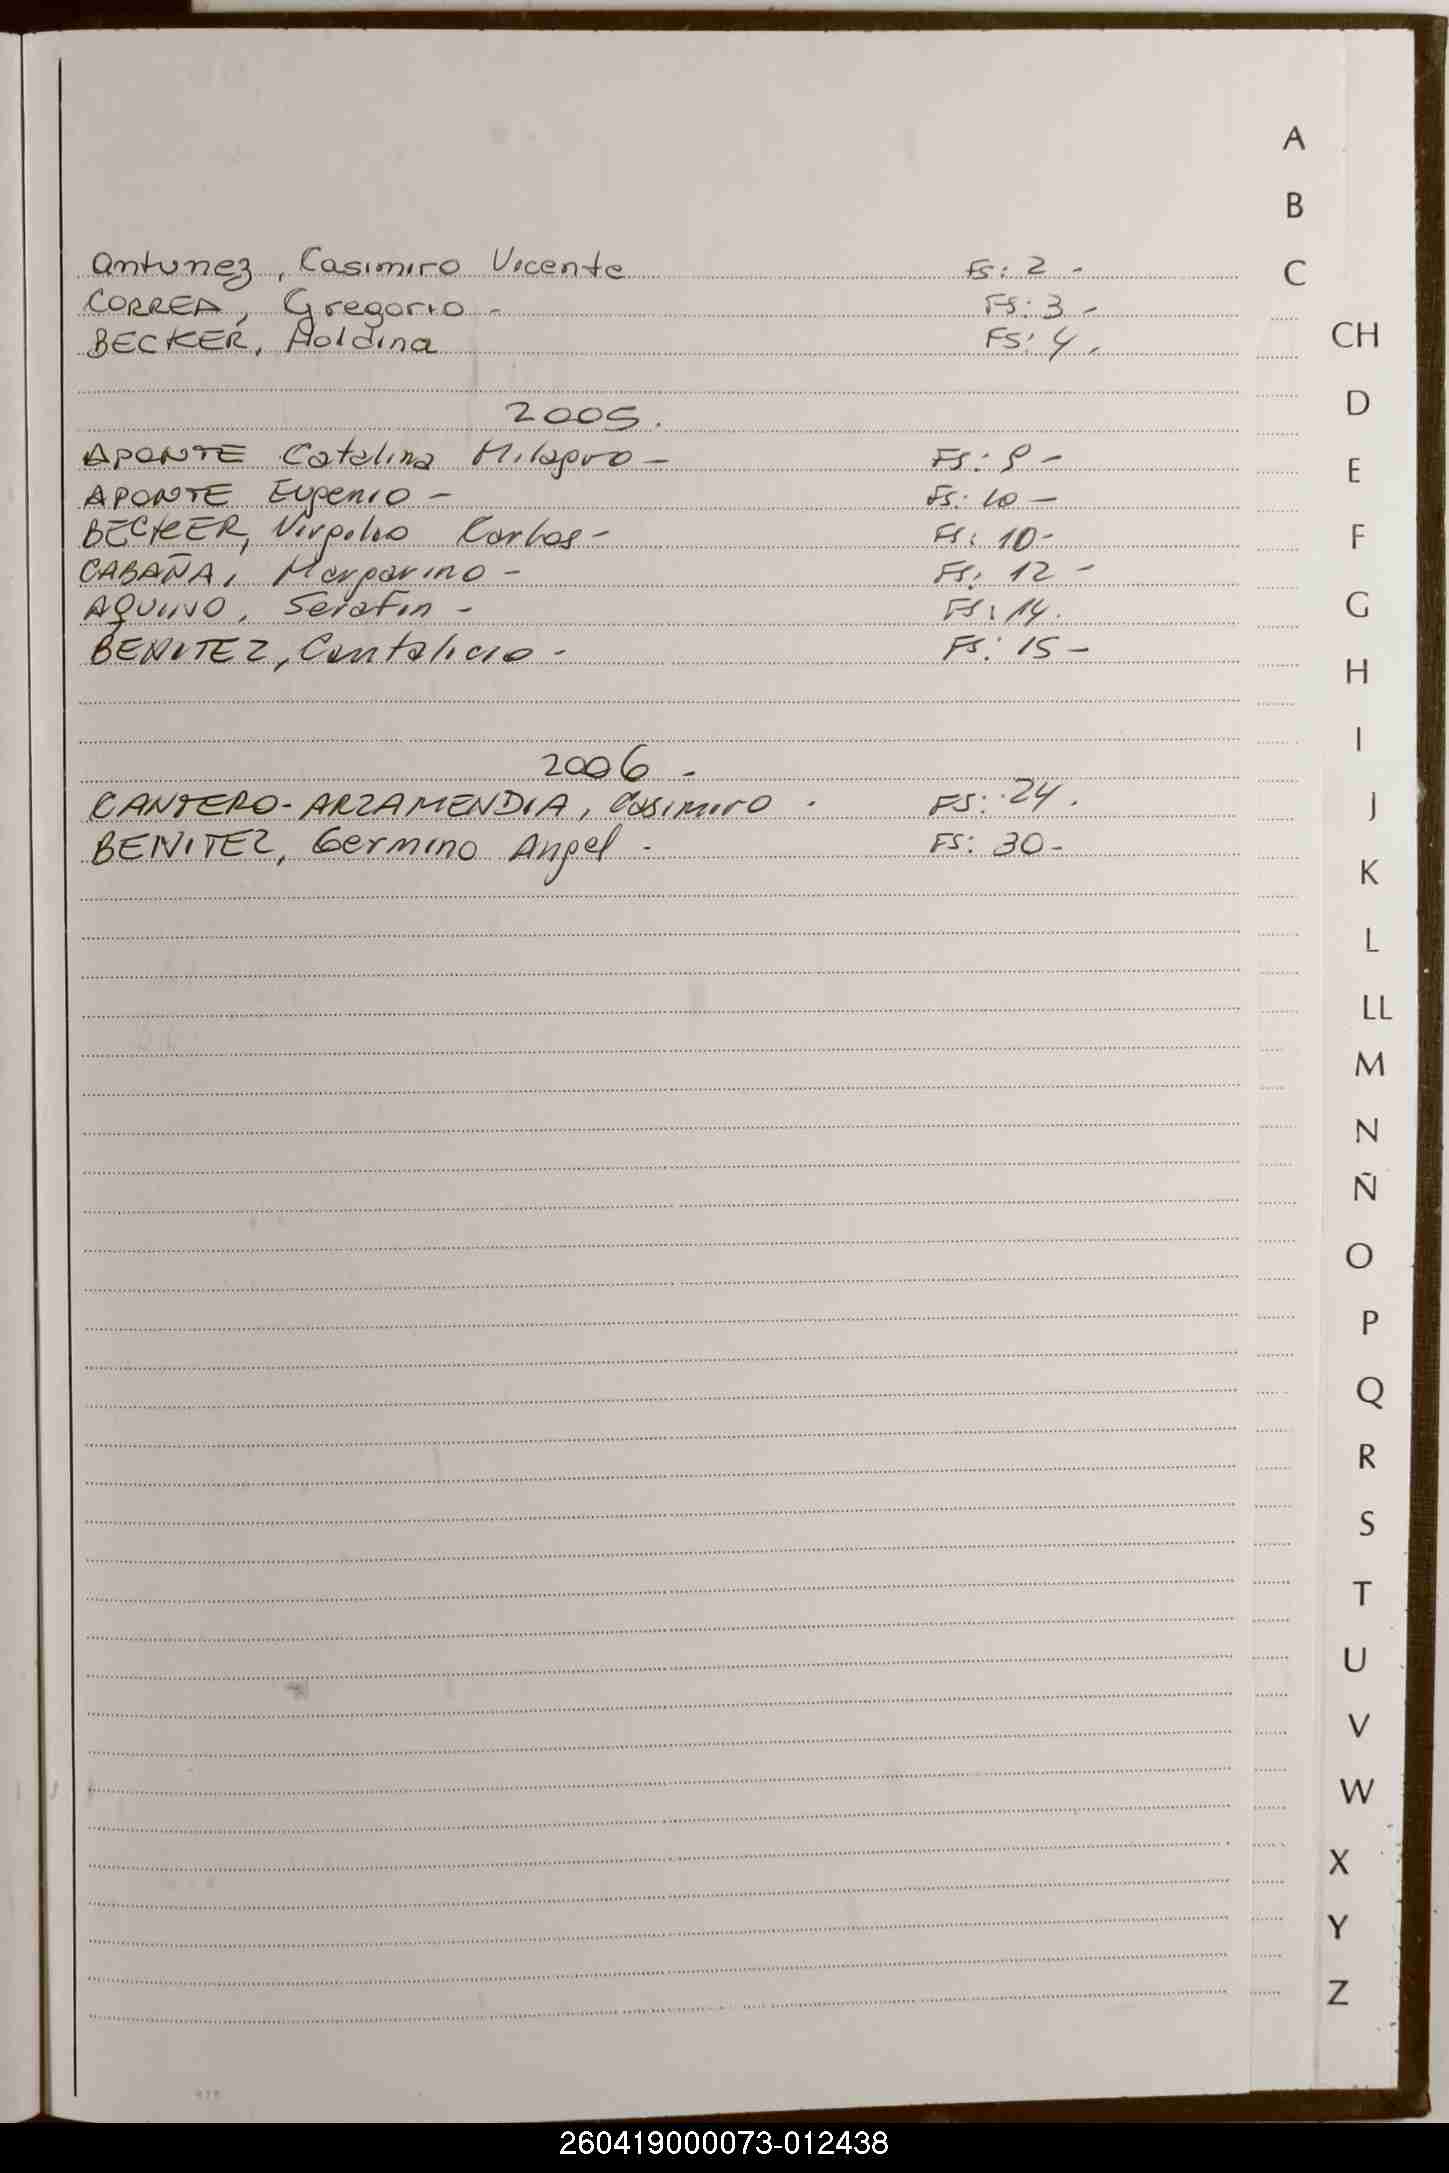 Antunez, Casimiro Vicente Fs: 2 -
CORREA, Gregorio - Fs: 3 -
BECKER, Holdina Fs: 4.
2005.
APONTE Catalina Milagro - Fs: 9 -
APONTE Eugenio - Fs: 10 -
BECKER, Virgilio Carlos - Fs: 10 -
CABAÑA, Margarino - Fs: 12 -
AQUINO, Serafin - Fs: 14.
BENITEZ, Cantalicio - Fs: 15 -
2006 -
CANTERO-ARZAMENDIA, Casimiro . Fs: 24.
BENITEZ, Germino Angel - Fs: 30 -
A
B
C
CH
D
E
F
G
H
I
J
K
L
LL
M
N
Ñ
O
P
Q
R
S
T
U
V
W
X
Y
Z
260419000073-012438